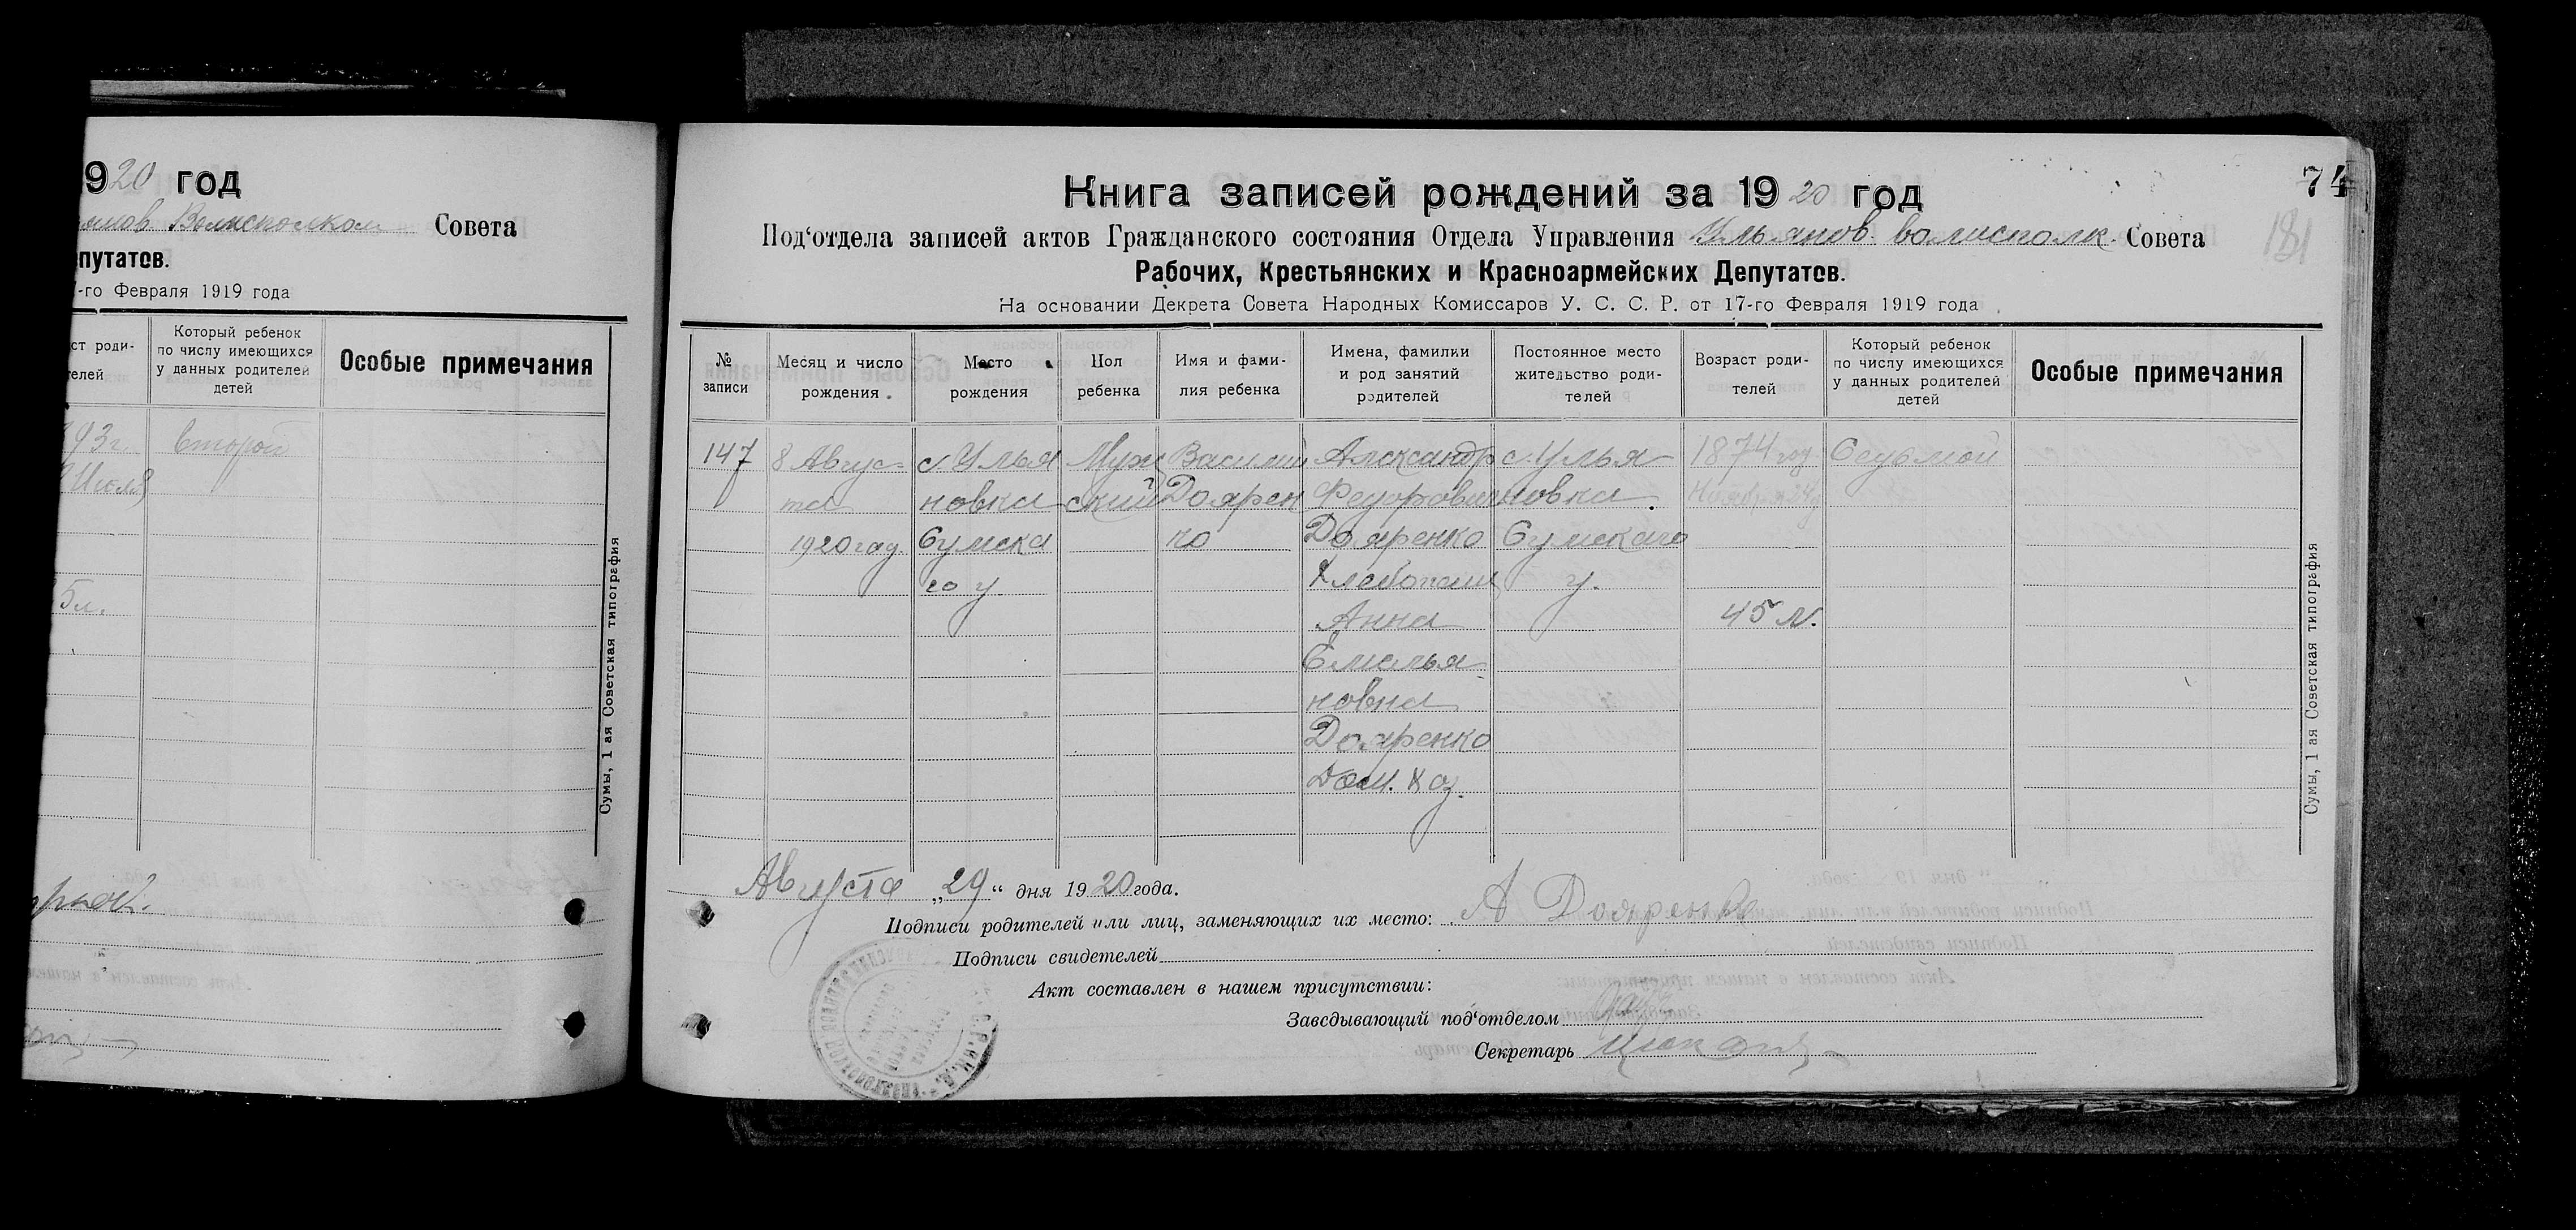 920 год
Волисполком Совета
путатов.
-го Февраля 1919 года
ст роди-
телей
Который ребенок
по числу имеющихся
у данных родителей
детей
Особые примечания
93г. второй
Июля
5л.
Сумы, 1 ая Советская типография
74
181
Книга записей рождений за 1920 год
Под‘отдела записей актов Гражданского состояния Отдела Управления Ульянов. волисполк. Совета
Рабочих, Крестьянских и Красноармейских Депутатов.
На основании Декрета Совета Народных Комиссаров У. С. С. Р. от 17-го Февраля 1919 года
№
записи
Месяц и число
рождения
Место
рождения
Пол
ребенка
Имя и фами-
лия ребенка
Имена, фамилии
и род занятий
родителей
Постоянное место
жительство роди-
телей
Возраст роди-
телей
Который ребенок
по числу имеющихся
у данных родителей
детей
Особые примечания
147 8 Авгус- с Улья Муж Василий Александр с. Улья 1874 год Седьмой
та новка ский Доярен Федорович новка Ноября 24
1920 год. Сумска ко Дояренко Сумскаго
го у. Хлебопаш у.
Анна 45 л.
Емелья
новна
Дояренко
Дом. Хоз.
Сумы, 1 ая Советская типография
Августа „29“ дня 1920 года.
Подписи родителей или лиц, заменяющих их место: А Дояренко
Подписи свидетелей
Акт составлен в нашем присутствии:
Заведывающий под‘отделом
Секретарь